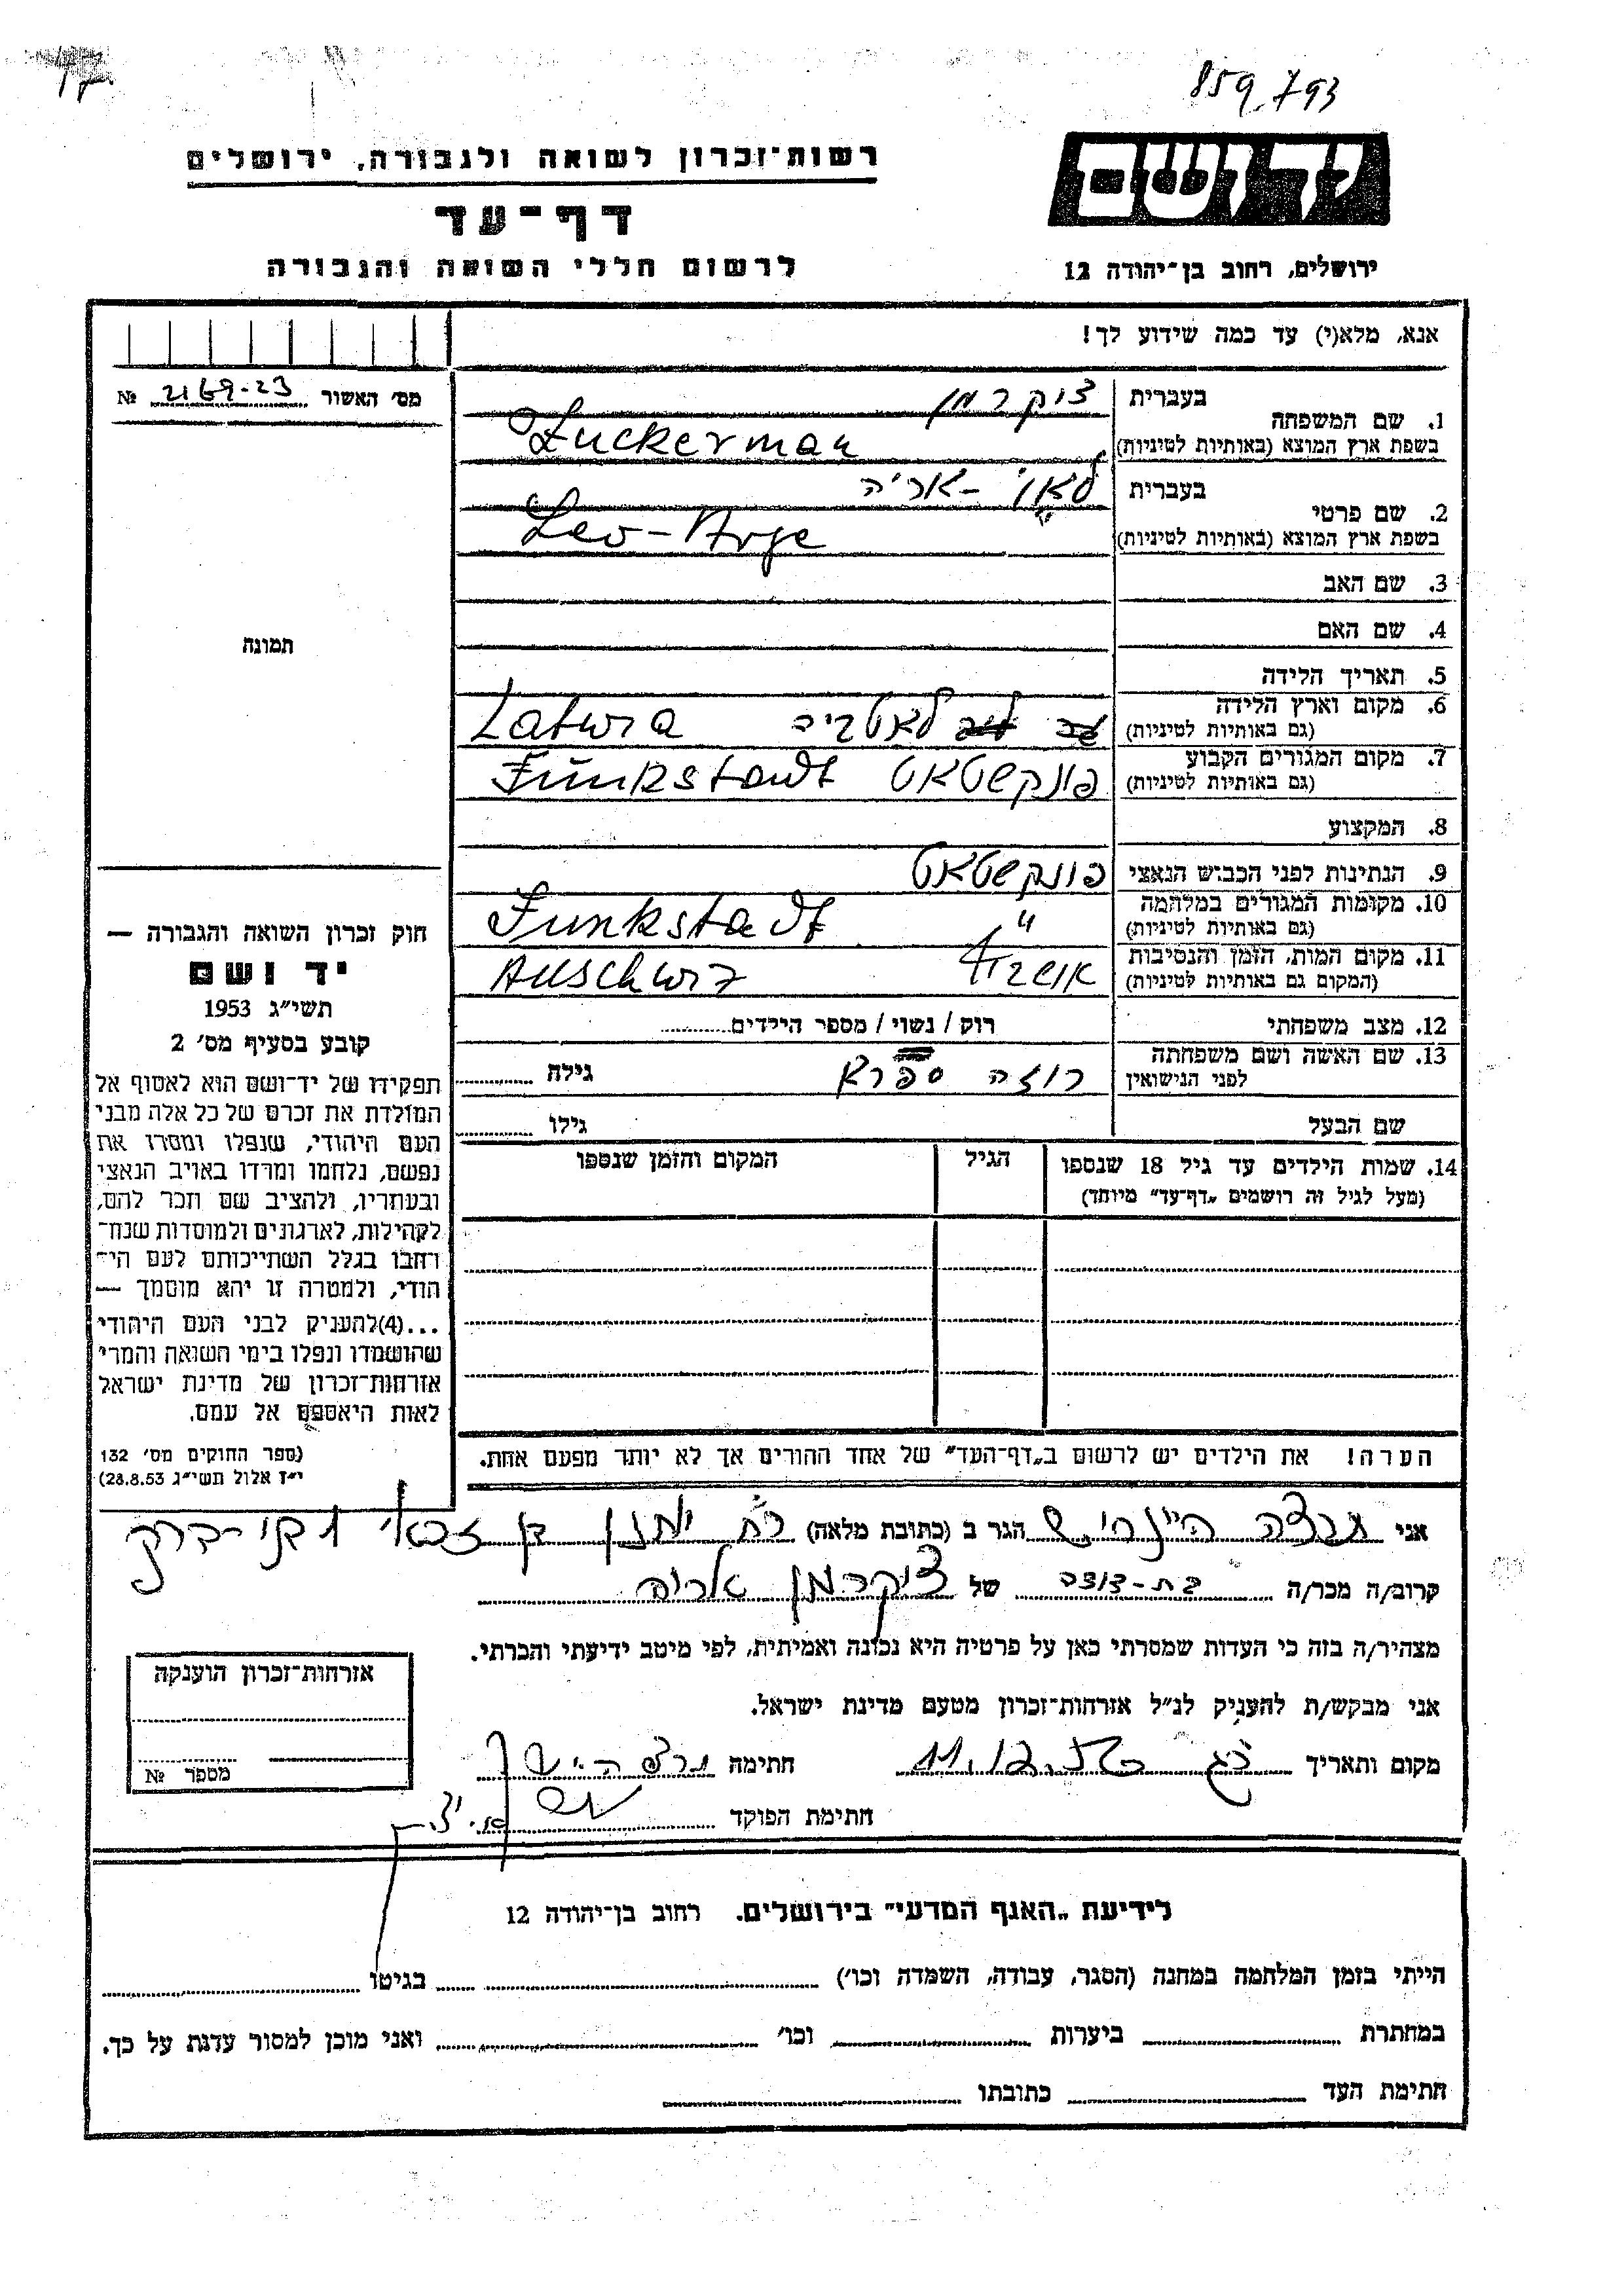 859.793
רשות־זכרון לשואה ולגבורה, ירושלים
יד ושם
דף־עד
לרשום חללי השואה והגבורה
ירושלים, רחוב בן־יהודה 12
אנא, מלא(י) עד כמה שידוע לך!
מס׳ האשור 2169-23 №
1. שם המשפחה
בעברית צוקרמן
בשפת ארץ המוצא (באותיות לטיניות) Zuckerman
2. שם פרטי
בעברית לאו - אריה
בשפת ארץ המוצא (באותיות לטיניות) Leo-Arje
3. שם האב
4. שם האם
תמונה
5. תאריך הלידה
6. מקום וארץ הלידה
(גם באותיות לטיניות) לאטביה Latwia
7. מקום המגורים הקבוע
(גם באותיות לטיניות) פונקשטאט Funkstadt
8. המקצוע
9. הנתינות לפני הכבוש הנאצי פונקשטאט
10. מקומות המגורים במלחמה
(גם באותיות לטיניות) " Funkstadt
11. מקום המות, הזמן והנסיבות
(המקום גם באותיות לטיניות) אושויץ Auschwiz
12. מצב משפחתי רוק / נשוי / מספר הילדים
13. שם האשה ושם משפחתה
לפני הנישואין רוזה ספרא גילה
שם הבעל גילו
14. שמות הילדים עד גיל 18 שנספו
(מעל לגיל זה רושמים „דף־עד" מיוחד)
הגיל
המקום והזמן שנספו
חוק זכרון השואה והגבורה —
יד ושם
תשי״ג 1953
קובע בסעיף מס׳ 2
תפקידו של יד־ושם הוא לאסוף אל
המולדת את זכרם של כל אלה מבני
העם היהודי, שנפלו ומסרו את
נפשם, נלחמו ומרדו באויב הנאצי
ובעוזריו, ולהציב שם וזכר להם,
לקהילות, לארגונים ולמוסדות שנח־
רחבו בגלל השתייכותם לעם הי־
הודי, ולמטרה זו יהא מוסמך —
...(4)להעניק לבני העם היהודי
שהושמדו ונפלו בימי השואה והמרי
אזרחות־זכרון של מדינת ישראל
לאות היאספם אל עמם.
(ספר החוקים מס׳ 132
י״ז אלול תשי״ג 28.8.53)
הערה! את הילדים יש לרשום ב„דף־העד" של אחד ההורים אך לא יותר מפעם אחת.
אני הגר ב (כתובת מלאה) רח יונתן בן זכאי בני-ברק
קרוב/ה מכר/ה בת-דודה של צוקרמן אריה
מצהיר/ה בזה כי העדות שמסרתי כאן על פרטיה היא נכונה ואמיתית, לפי מיטב ידיעתי והכרתי.
אני מבקש/ת להעניק לנ״ל אזרחות־זכרון מטעם מדינת ישראל.
מקום ותאריך חתימה
חתימת הפוקד
אזרחות־זכרון הוענקה
מספר №
לידיעת „האגף המדעי" בירושלים. רחוב בן־יהודה 12
הייתי בזמן המלחמה במחנה (הסגר, עבודה, השמדה וכו׳) בגיטו
במחתרת ביערות וכו׳ ואני מוכן למסור עדות על כך.
חתימת העד כתובתו